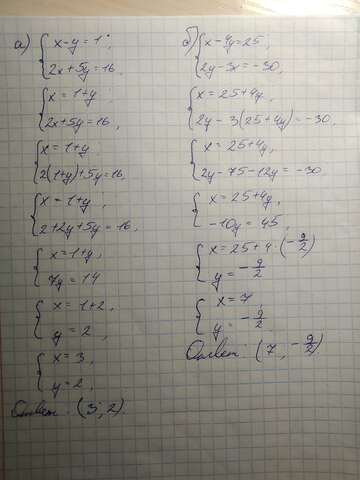 а) { x-y=1;
2x+5y=16,
{ x=1+y
2x+5y=16,
{ x=1+y
2(1+y)+5y=16,
{ x=1+y,
2+2y+5y=16,
{ x=1+y,
7y=14
{ x=1+2,
y=2,
{ x=3,
y=2,
Ответ: (3;2)
б) { x-4y=25;
2y-3x=-30,
{ x=25+4y,
2y-3(25+4y)=-30,
{ x=25+4y,
2y-75-12y=-30
{ x=25+4y,
-10y=45,
{ x=25+4·(-9/2)
y=-9/2
{ x=7,
y=-9/2
Ответ: (7, -9/2)